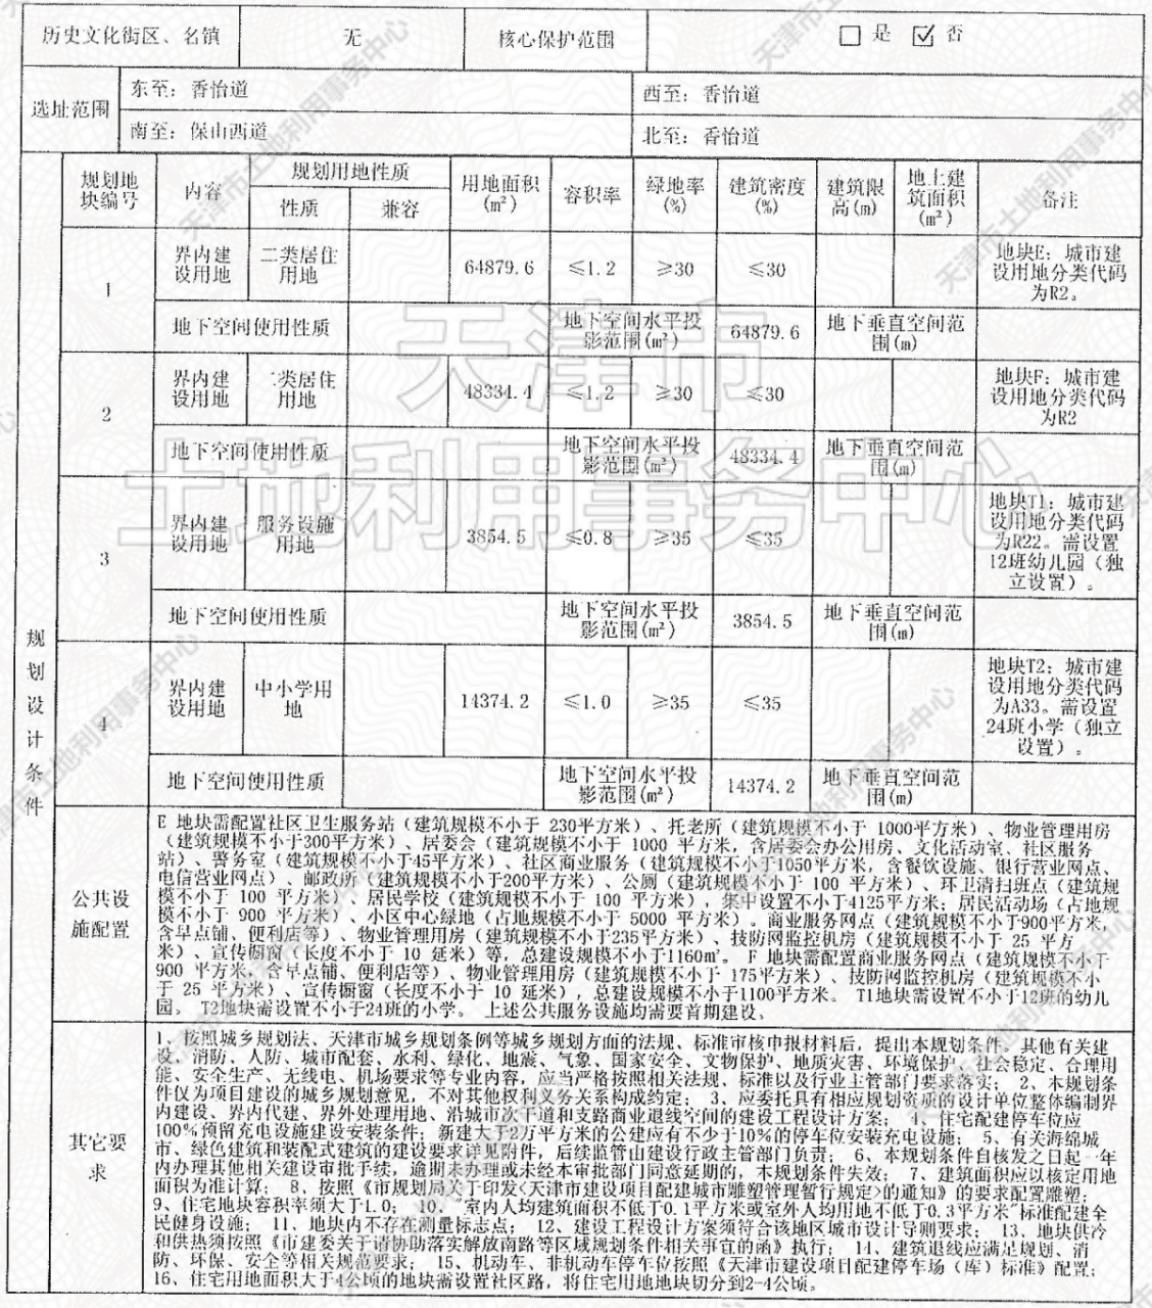 历史文化街区、名镇 无 核心保护范围 □ 是 ☑ 否
选址范围 东至：香怡道 西至：香怡道
南至：保山西道 北至：香怡道
规划设计条件
规划地块编号 内容 规划用地性质 用地面积(m²) 容积率 绿地率(%) 建筑密度(%) 建筑限高(m) 地上建筑面积(m²) 备注
性质 兼容
1 界内建设用地 二类居住用地 64879.6 ≤1.2 ≥30 ≤30 地块E：城市建设用地分类代码为R2。
地下空间使用性质 地下空间水平投影范围(m²) 64879.6 地下垂直空间范围(m)
2 界内建设用地 二类居住用地 48334.4 ≤1.2 ≥30 ≤30 地块F：城市建设用地分类代码为R2
地下空间使用性质 地下空间水平投影范围(m²) 48334.4 地下垂直空间范围(m)
3 界内建设用地 服务设施用地 3854.5 ≤0.8 ≥35 ≤35 地块T1：城市建设用地分类代码为R22。需设置12班幼儿园（独立设置）。
地下空间使用性质 地下空间水平投影范围(m²) 3854.5 地下垂直空间范围(m)
4 界内建设用地 中小学用地 14374.2 ≤1.0 ≥35 ≤35 地块T2：城市建设用地分类代码为A33。需设置24班小学（独立设置）。
地下空间使用性质 地下空间水平投影范围(m²) 14374.2 地下垂直空间范围(m)
公共设施配置
E 地块需配置社区卫生服务站（建筑规模不小于 230平方米）、托老所（建筑规模不小于 1000平方米）、物业管理用房
（建筑规模不小于300平方米）、居委会（建筑规模不小于 1000 平方米，含居委会办公用房、文化活动室、社区服务
站）、警务室（建筑规模不小于45平方米）、社区商业服务（建筑规模不小于1050平方米，含餐饮设施、银行营业网点、
电信营业网点）、邮政所（建筑规模不小于200平方米）、公厕（建筑规模不小于 100 平方米）、环卫清扫班点（建筑规
模不小于 100 平方米）、居民学校（建筑规模不小于 100 平方米），集中设置不小于4125平方米；居民活动场（占地规
模不小于 900 平方米）、小区中心绿地（占地规模不小于 5000 平方米）。商业服务网点（建筑规模不小于900平方米，
含早点铺、便利店等）、物业管理用房（建筑规模不小于235平方米）、技防网监控机房（建筑规模不小于 25 平方
米）、宣传橱窗（长度不小于 10 延米）等，总建设规模不小于1160㎡。 F 地块需配置商业服务网点（建筑规模不小于
900 平方米，含早点铺、便利店等）、物业管理用房（建筑规模不小于 175平方米）、技防网监控机房（建筑规模不小
于 25 平方米）、宣传橱窗（长度不小于 10 延米），总建设规模不小于1100平方米。 T1地块需设置不小于12班的幼儿
园。 T2地块需设置不小于24班的小学。 上述公共服务设施均需要首期建设。
其它要求
1、按照城乡规划法、天津市城乡规划条例等城乡规划方面的法规、标准审核申报材料后，提出本规划条件。其他有关建
设、消防、人防、城市配套、水利、绿化、地震、气象、国家安全、文物保护、地质灾害、环境保护、社会稳定、合理用
能、安全生产、无线电、机场要求等专业内容，应当严格按照相关法规、标准以及行业主管部门要求落实； 2、本规划条
件仅为项目建设的城乡规划意见，不对其他权利义务关系构成约定； 3、应委托具有相应规划资质的设计单位整体编制界
内建设、界内代建、界外处理用地、沿城市次干道和支路商业退线空间的建设工程设计方案； 4、住宅配建停车位应
100%预留充电设施建设安装条件；新建大于2万平方米的公建应有不少于10%的停车位安装充电设施； 5、有关海绵城
市、绿色建筑和装配式建筑的建设要求详见附件，后续监管由建设行政主管部门负责； 6、本规划条件自核发之日起一年
内办理其他相关建设审批手续，逾期未办理或未经本审批部门同意延期的，本规划条件失效； 7、建筑面积应以核定用地
面积为准计算； 8、按照《市规划局关于印发<天津市建设项目配建城市雕塑管理暂行规定>的通知》的要求配置雕塑；
9、住宅地块容积率须大于1.0； 10、"室内人均建筑面积不低于0.1平方米或室外人均用地不低于0.3平方米"标准配建全
民健身设施； 11、地块内不存在测量标志点； 12、建设工程设计方案须符合该地区城市设计导则要求； 13、地块供冷
和供热须按照《市建委关于请协助落实解放南路等区域规划条件相关事宜的函》执行； 14、建筑退线应满足规划、消
防、环保、安全等相关规范要求； 15、机动车、非机动车停车位按照《天津市建设项目配建停车场（库）标准》配置；
16、住宅用地面积大于4公顷的地块需设置社区路，将住宅用地地块切分到2-4公顷。
天津市
土地利用事务中心
天津市土地利用事务中心